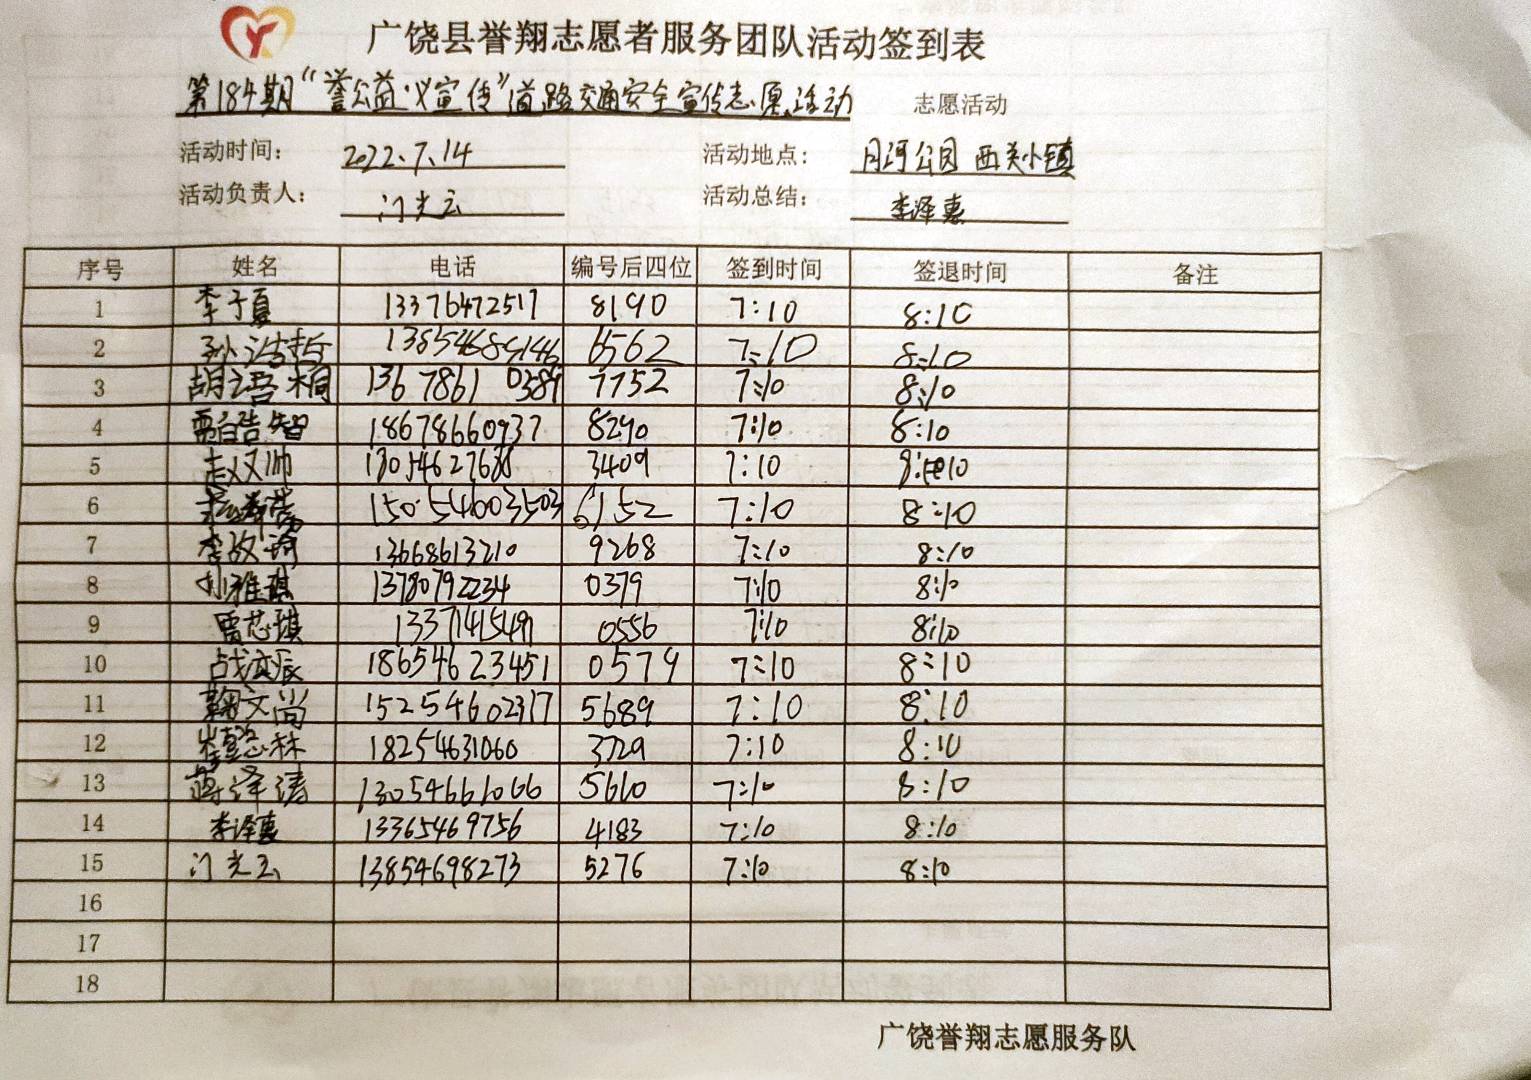 广饶县誉翔志愿者服务团队活动签到表
第184期“誉公益·义宣传”道路交通安全宣传志愿活动 志愿活动
活动时间: 2022.7.14 活动地点: 月河公园 西关小镇
活动负责人: 门光云 活动总结: 李泽惠
序号 姓名 电话 编号后四位 签到时间 签退时间 备注
1 李子夏 13376472517 8190 7:10 8:10
2 孙浩哲 13854684146 6562 7:10 8:10
3 胡语桐 136 7861 0389 7752 7:10 8:10
4 18678660937 8290 7:10 8:10
5 赵双帅 3409 7:10 8:10
6 6152 7:10 8:10
7 李政 13668613210 9268 7:10 8:10
8 孙雅琪 13780792234 0379 7:10 8:10
9 芯琪 13371415491 0556 7:10 8:10
10 18654623451 0579 7:10 8:10
11 鞠文尚 15254602317 5689 7:10 8:10
12 崔懿林 18254631060 3729 7:10 8:10
13 蒋泽涛 13054661066 5610 7:10 8:10
14 李泽惠 13365469756 4183 7:10 8:10
15 门光云 13854698273 5276 7:10 8:10
16
17
18
广饶誉翔志愿服务队